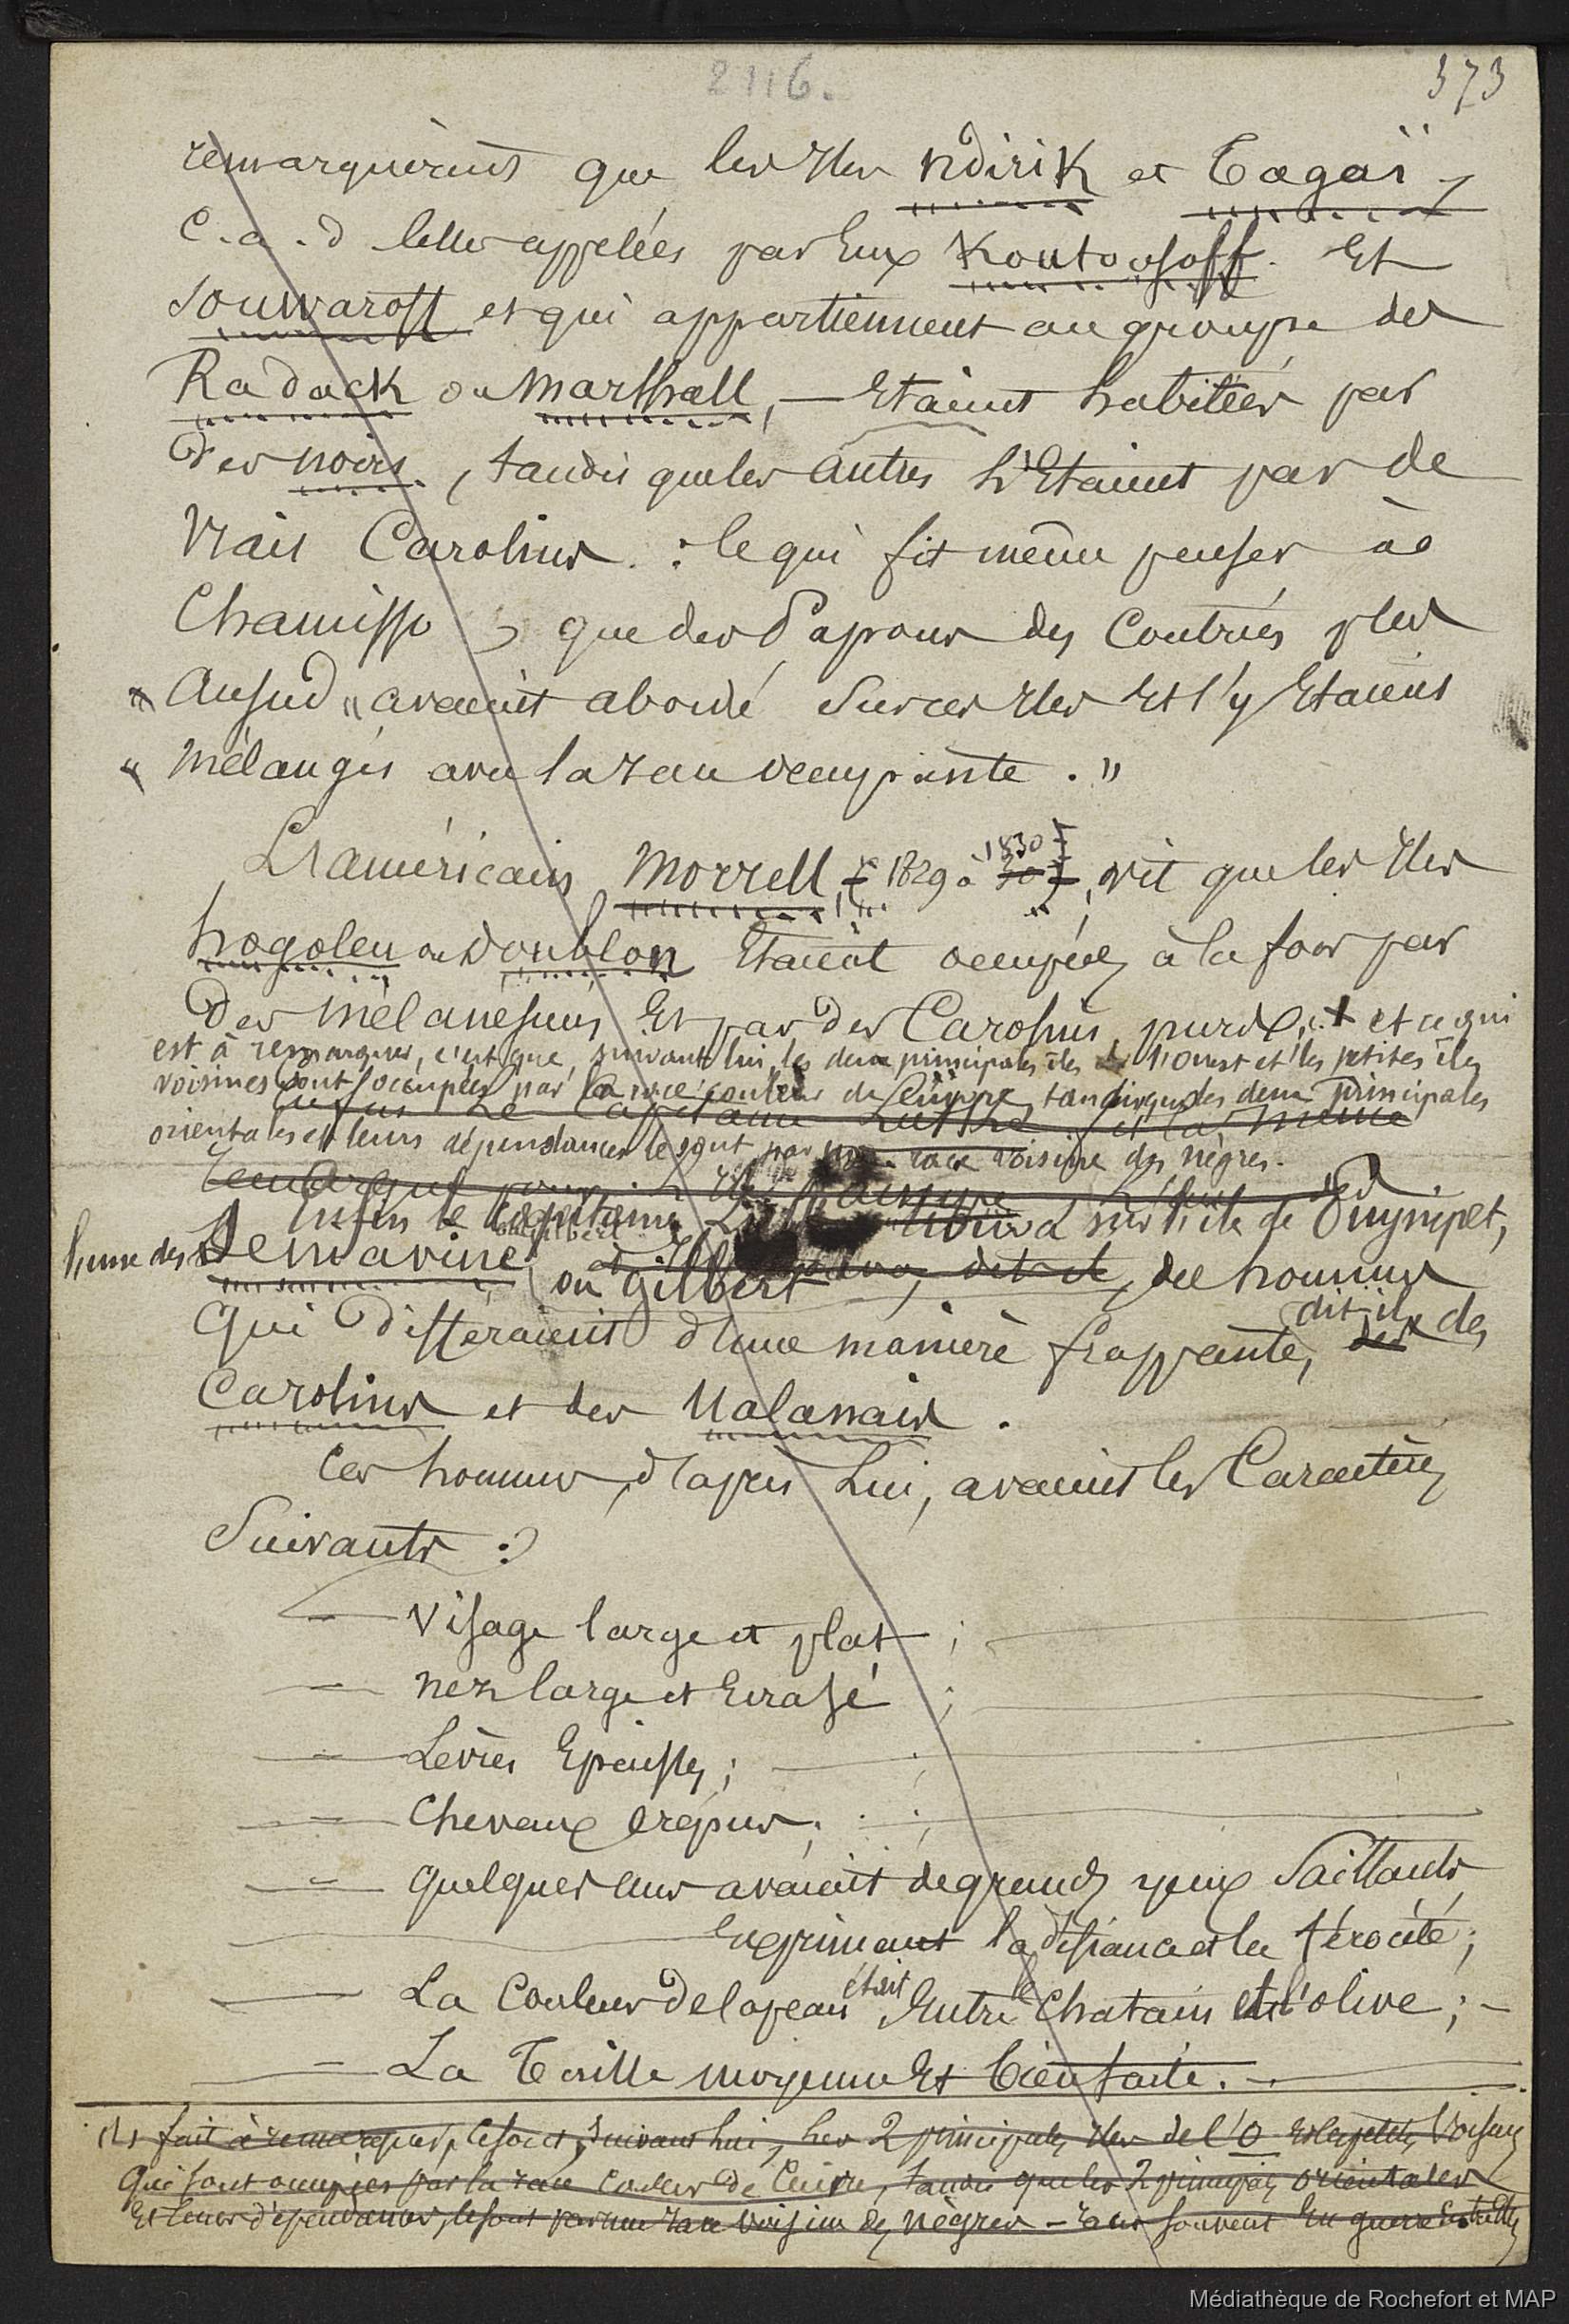 2116.
373
remarquèrent que les Iles Ndirik et Tagaï,
C.a.d celles appelées par Eux Koutousoff. Et
Souwaroff et qui appartiennent au groupe des
Radack ou Marshall, — Etaient habitées par
des noirs, tandis que les autres l'Etaient par de
vrais Carolins : ce qui fit même penser à
Chamisso, que des Papous des Contrées plus
" au sud " avaient abordé sur ces Iles Et s'y Etaient
" mélangés avec la race occupante. "
L'américain Morrell, (1829 à 30 1830), vit que les Iles
hogoleu ou Doublon Etaient occupées à la fois par
des mélanésiens Et par des Carolins purs, et ce qui
est à remarquer, c'est que, suivant lui, les deux principales îles de l'ouest et les petites îles
voisines sont occupées par la race couleur de cuivre, tandis que les deux principales
Enfin Le Capitaine Lutké fit la même
orientales et leurs dépendances le sont par une race voisine des nègres.
remarque pour
Enfin le Capitaine trouva sur l'île de Ouynipet,
l'une des Senavine ou Gilbert dit-il, des hommes
qui differaient d'une manière frappante, dit-il, des des
Carolins et des Malanais.
Ces hommes, d'après Lui, avaient les Caractères
Suivants :
— Visage large et plat ;
— nez large et Ecrasé ;
— Lèvres Epaisses ;
— Cheveux Crépus ;
— quelques uns avaient de grands yeux Saillants
Exprimant la défiance et la férocité ;
— La Couleur de la peau était Entre le Chatain et l'olive ; —
— La Taille moyenne Et bien faite. —
(1) fait à remarquer, ce sont, suivant lui, les 2 principales Iles de l'O Et les petites Voisines
qui sont occupées par la race couleur de Cuivre, tandis que les 2 principales orientales
Et leurs dépendances, le sont par une race voisine des nègres — race souvent En guerre Entr'Elles
Médiathèque de Rochefort et MAP